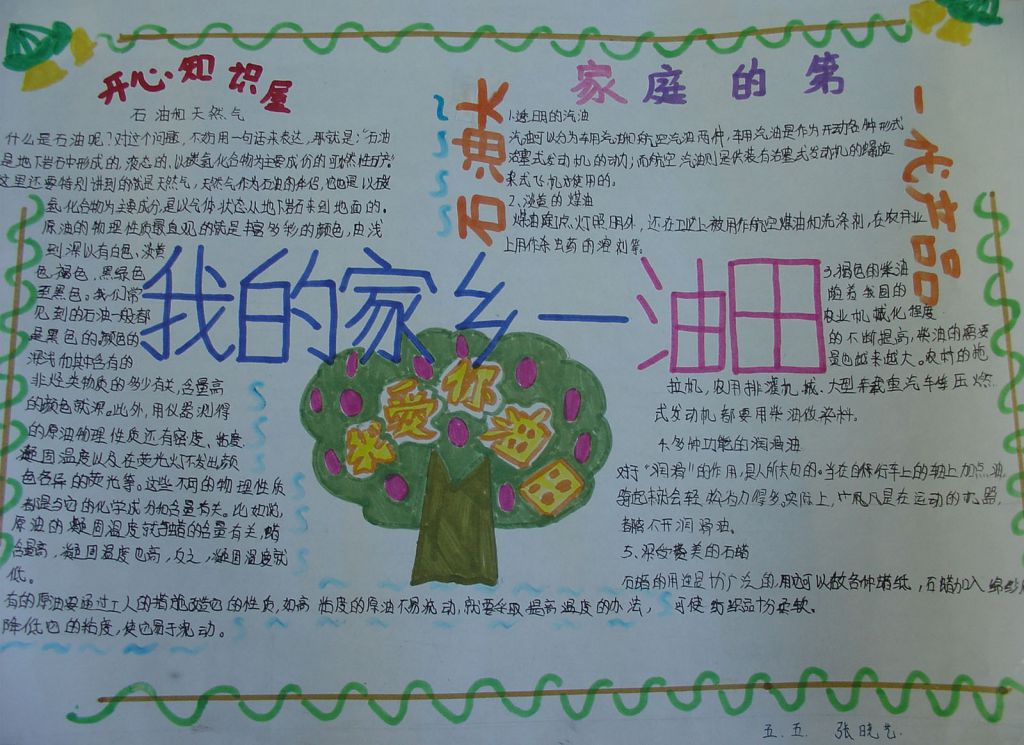 开心知识屋
石油和天然气
什么是石油呢?对这个问题,不妨用一句话来表达,那就是:“石油
是地下岩石中形成的,液态的,以碳氢化合物为主要成份的可燃性矿产
这里还要特别讲到的就是天然气,天然气作为石油的伴侣,它也是以碳
氢化合物为主要成分,是以气体状态从地下岩石来到地面的。
原油的物理性质最直观的就是丰富多彩的颜色,由浅
到深以有白色、淡黄
色、褐色、黑绿色
至黑色。我们常
见到的石油一般都
是黑色的颜色的
深浅和其中含有的
非烃类物质的多少有关,含量高
的颜色就深。此外,用仪器测得
的原油物理性质还有密度、粘度、
凝固温度以及在荧光灯下发出颜
色各异的荧光等。这些不同的物理性质
都是与它的化学成分和含量有关。比如说,
原油的凝固温度就和蜡的含量有关,蜡
含量高,凝固温度也高,反之,凝固温度就
低。
有的原油要通过工人的措施改造它的性质,如高粘度的原油不易流动,就要采取提高温度的办法,
降低它的粘度,使它易于流动。
我的家乡—油田
我爱你油田
石油大家庭的第一代产品
1.透明的汽油
汽油可以分为车用汽油和航空汽油两种,车用汽油是作为开动各种形式
活塞式发动机的动力;而航空汽油则是供装有活塞式发动机的螺旋
桨式飞机使用的。
2、淡黄的煤油
煤油除点灯照明外,还在工业上被用作航空煤油和洗涤剂,在农用业
上用作杀虫药的溶剂等。
3、褐色的柴油
随着我国的
农业机械化程度
的不断提高,柴油的需要
量也越来越大。农村的拖
拉机,农用排灌机械、大型车载重汽车等压燃
式发动机都要用柴油做燃料。
4.多种功能的润滑油
对于“润滑”的作用,是人所共知的。当在自行车上的轴上加点油,
骑起来就会轻
实际上,凡是在运动的机器,
都离不开润滑油。
5、深受赞美的石蜡
石蜡的用途是十分广泛的,用它可以做各种蜡纸,石蜡加入
可使纺织品十分柔软。
五.五 张晓艺